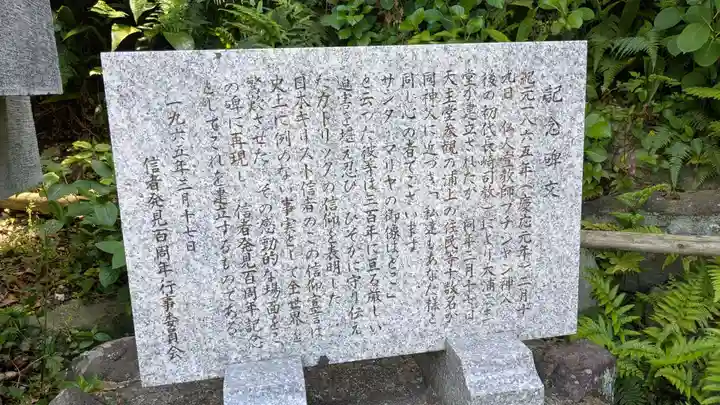 記念碑文
紀元一八六五年(慶応元年)二月十
九日 仏人宣教師プチジャン神父(
後の初代長崎司教)により大浦天主
堂が建立されたが 同年三月十七日
天主堂参観の浦上の住民等十数名が
同神父に近づき「私達もあなた様と
同じ心の者でございます
サンタ・マリヤの御像はどこ」
と云った 彼等は三百年に亘る厳しい
迫害を堪え忍び ひそかに守り伝え
たカトリックの信仰を表明した
日本キリスト信者のこの信仰宣言は
史上に例のない事実として全世界を
驚歎させた その感動的な場面をこ
の碑に再現し 信者発見百周年記念
としてこれを建立するものである
一九六五年三月十七日
信者発見百周年行事委員会